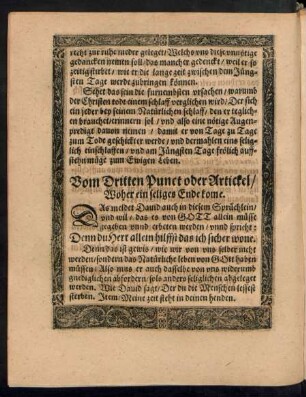 recht zur ruhe nieder geleget/ Welchs vns diese vnnötige
gedancken nemen soll/ das mancher gedenckt/ weil er so
zeitig stirbet/ wie er die lange zeit zwischen dem Jüng-
sten Tage werde zubringen können.
Sehet das sein die fürnembsten vrsachen/ warumb
der Christen todt einem schlaff verglichen wird/ Der sich
ein jeder bey seinem Natürlichen schlaff/ den er teglichen
brauchet/ erinnern sol/ vnd also eine nötige Augen-
predigt dauon nemen/ damit er von Tage zu Tage
zum Tode geschickter werde/ vnd dermahlen eins selig-
lich einschlaffen/ vnd am Jüngsten Tage frölich auff-
stehn müge zum Ewigen Leben.
Vom Dritten Punct oder Artickel/
Woher ein seliges Ende kome.
DAs meldet Dauid auch in diesem Sprüchlein/
vnd wil/ das es von GOTT allein müsse
gegeben vnnd erbeten werden/ vnnd spricht:
Denn du Herr allein hilffst das ich sicher wone.
Denn das ist gewis/ wie wir von vns selber nicht
werden/ sondern das Natürliche leben von GOtt haben
müssen/ Also mus er auch dasselbe von vns widerumb
gnediglichen abfordern/ sols anders seliglichen abgeleget
werden. Wie Dauid saget/ Der du die Menschen lessest
sterben. Item/ Meine zeit steht in deinen henden.